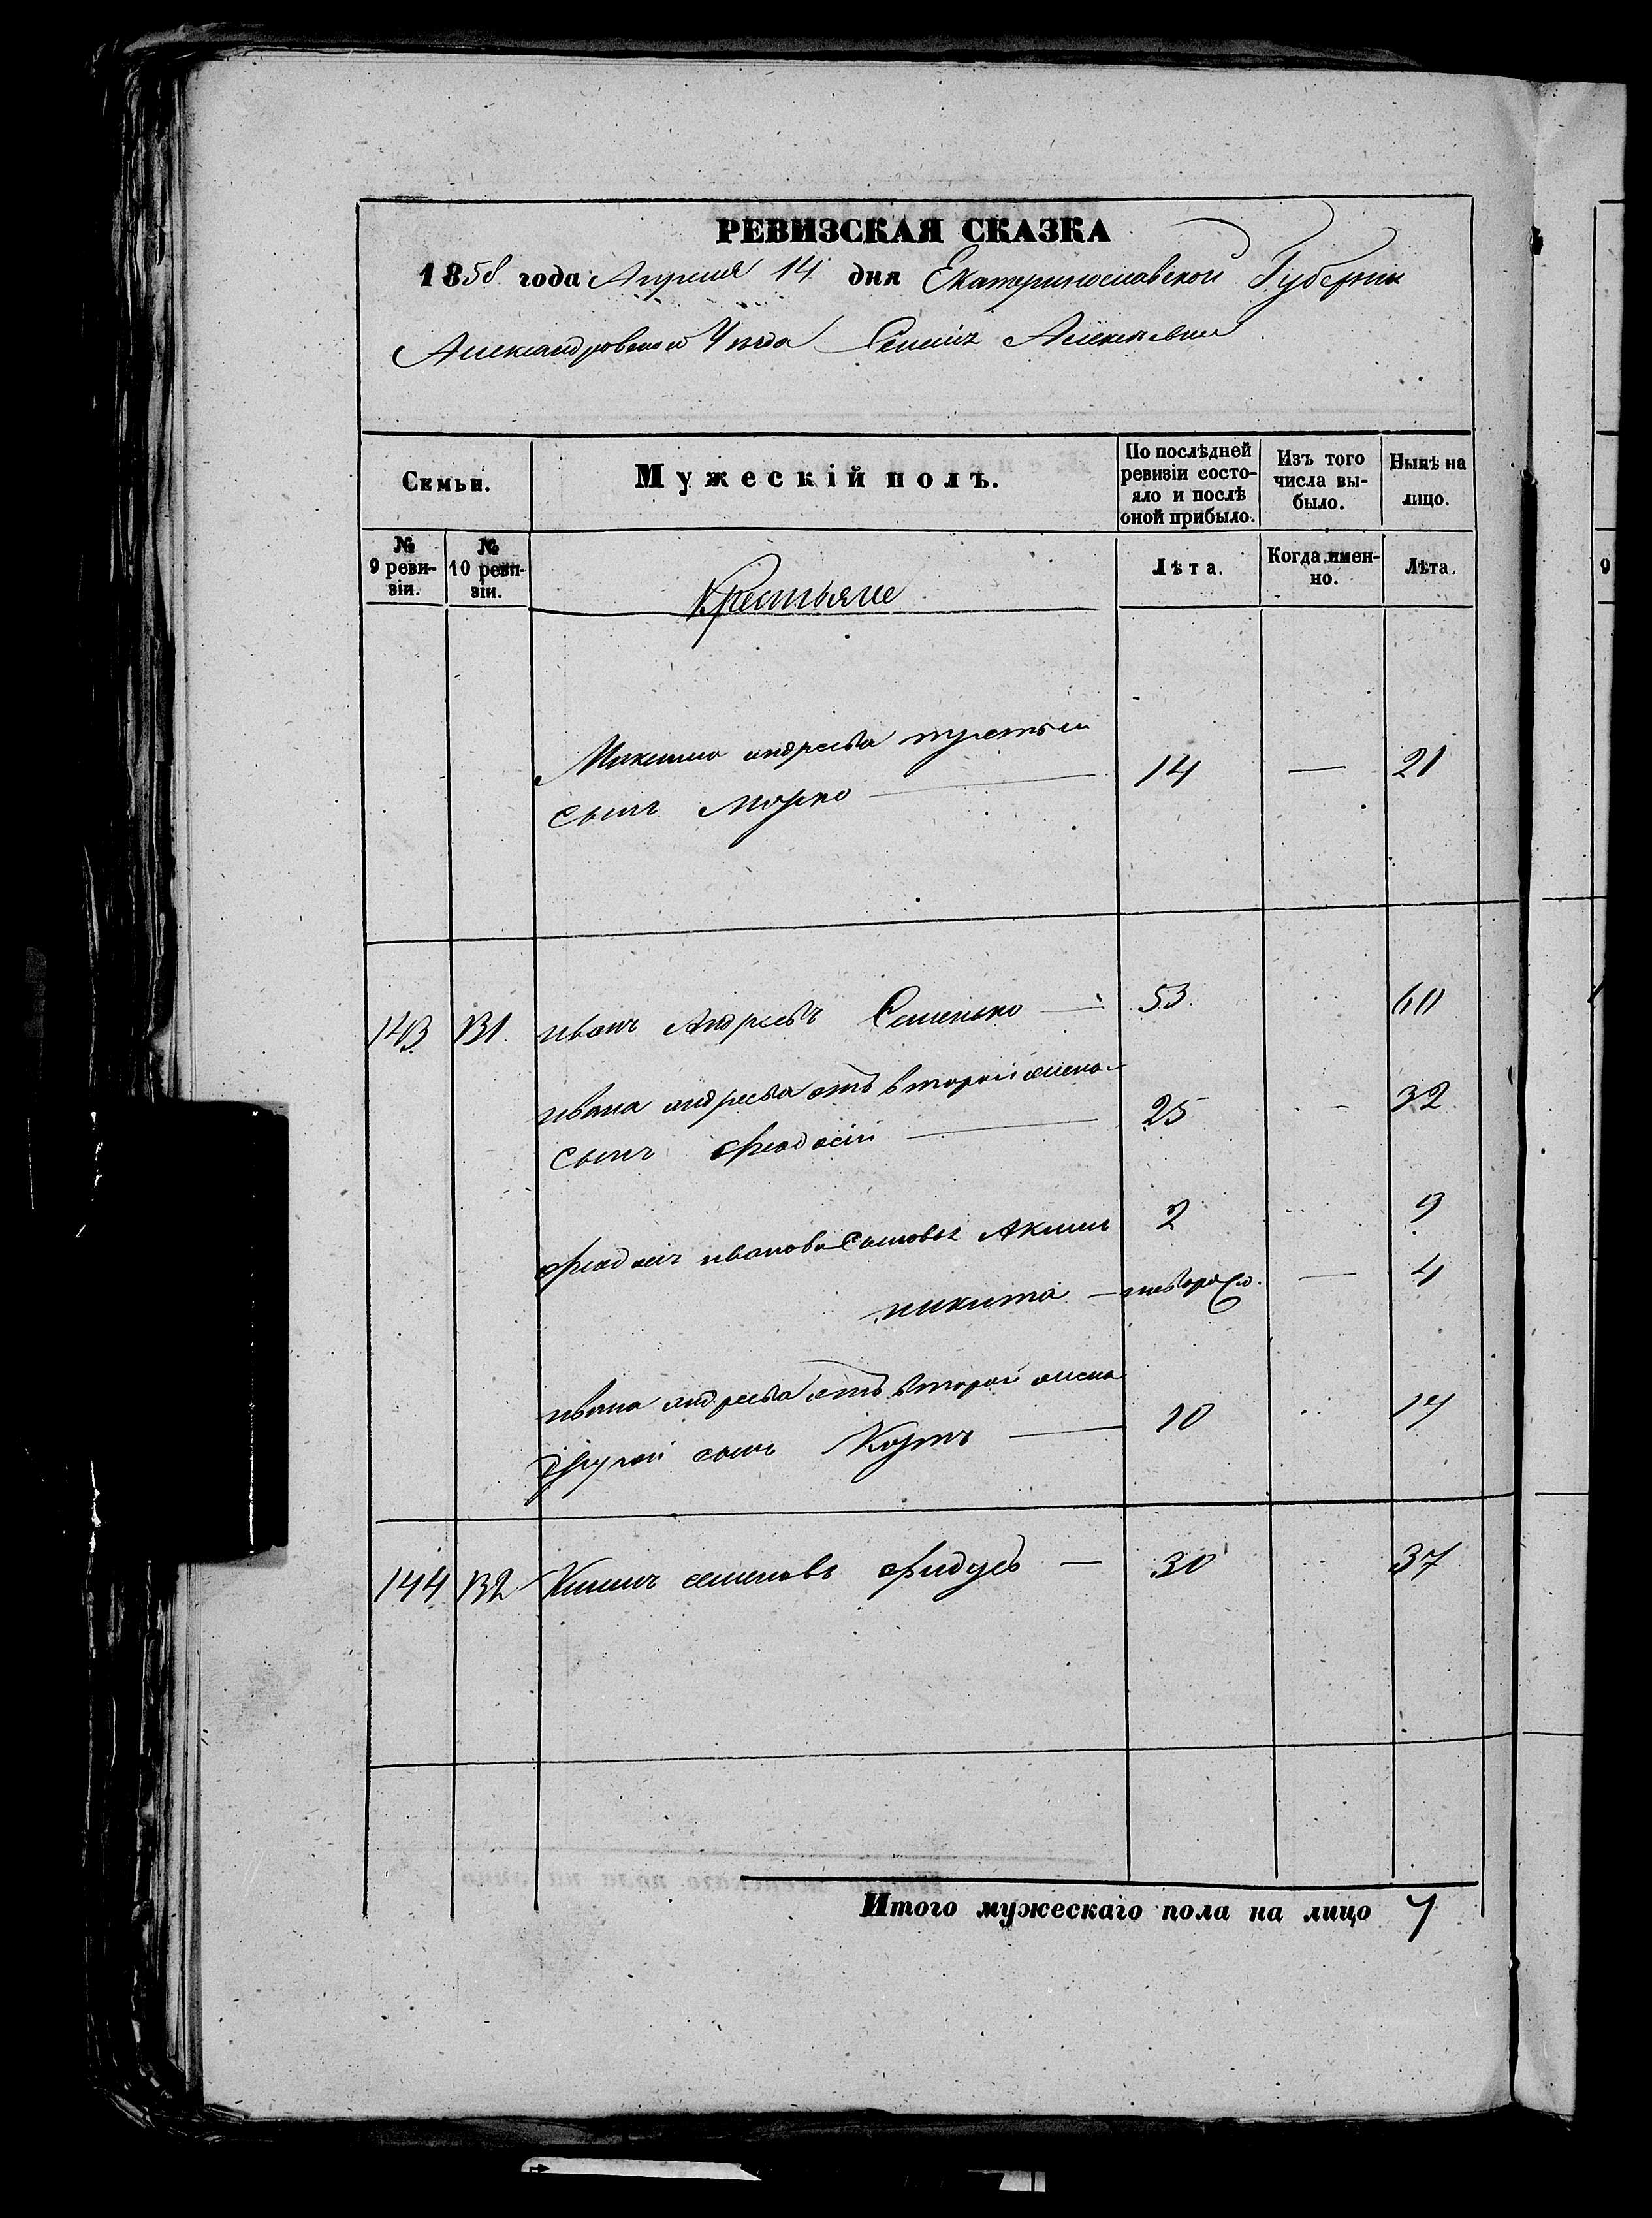 РЕВИЗСКАЯ СКАЗКА
1858 года Апреля 14 дня Екатеринославской Губернии
Александровского Уезда Селения
Семьи.
Мужескій полъ.
По послѣдней ревизіи состо-
яло и послѣ
оной прибыло.
Изъ того
числа вы-
было.
Нынѣ на
лицо.
№
9 реви-
зіи.
№
10 реви-
зіи.
Крестьяне
Лѣта.
Когда имен-
но.
Лѣта.
9
Максима андреева третьи
сынъ Марко — 14 — 21
143 131 иванъ Андреевъ Семенько — 53 60
ивана андреева отъ второй жены
сынъ Феодосій — 25 - 32
Феодосія иванова Сыновья Аким 2 9
никита — новорож. — 4
ивана андреева отъ второй жены
другой сынъ — 10 17
144 132 Климъ семеновъ Фидусь — 30 37
Итого мужескаго пола на лицо 7